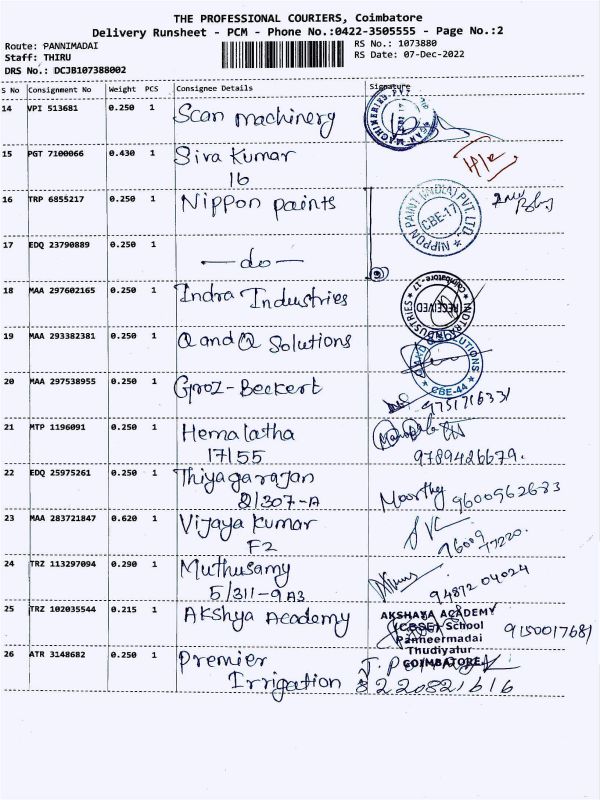 THE PROFESSIONAL COURIERS, Coimbatore
Delivery Runsheet - PCM - Phone No.:0422-3505555 - Page No.:2
Route: PANNIMADAI RS No.: 1073880
Staff: THIRU RS Date: 07-Dec-2022
DRS No.: DCJB107388002
S No Consignment No Weight PCS Consignee Details Signature
14 VPI 513681 0.250 1 Scan machinery
15 PGT 7100066 0.430 1 Siva Kumar
16
16 TRP 6855217 0.250 1 Nippon paints
NIPPON PAINT (INDIA) PVT. LTD.
CBE-17
17 EDQ 23790889 0.250 1 —do—
18 MAA 297602165 0.250 1 Indra Industries
RECEIVED
19 MAA 293382381 0.250 1 Q and Q Solutions
CBE-44
20 MAA 297538955 0.250 1 Groz-Beckert
21 MTP 1196091 0.250 1 Hemalatha
17/55 9789426679.
22 EDQ 25975261 0.250 1 Thiyagarajan
2/307-A Moorthy 9600562683
23 MAA 283721847 0.620 1 Vijaya Kumar
F2 76009 77220.
24 TRZ 113297094 0.290 1 Muthusamy
5/311-9A3 94872 04024
25 TRZ 102035544 0.215 1 Akshya Academy
AKSHAYA ACADEMY
(CBSE) School 9150017681
Panneermadai
Thudiyalur
COIMBATORE
26 ATR 3148682 0.250 1 Premier
Irrigation 8220821616